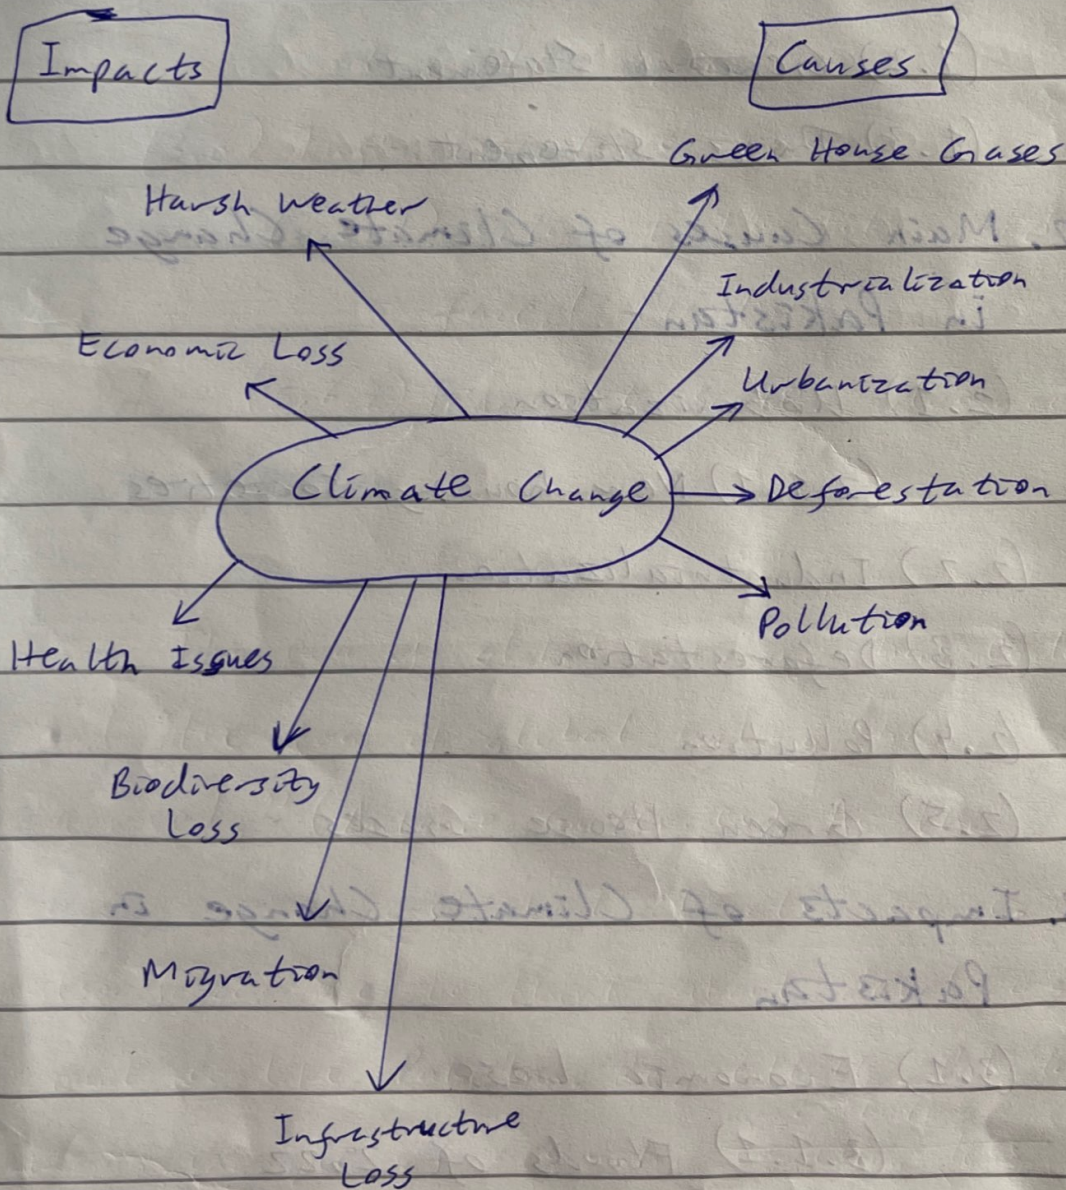 Impacts
Causes.
Green House Gases
Harsh Weather
Industrialization
Economic Loss
Urbanization
Climate Change
Deforestation
Pollution
Health Issues
Biodiversity
Loss
Migration
Infrastructure
Loss